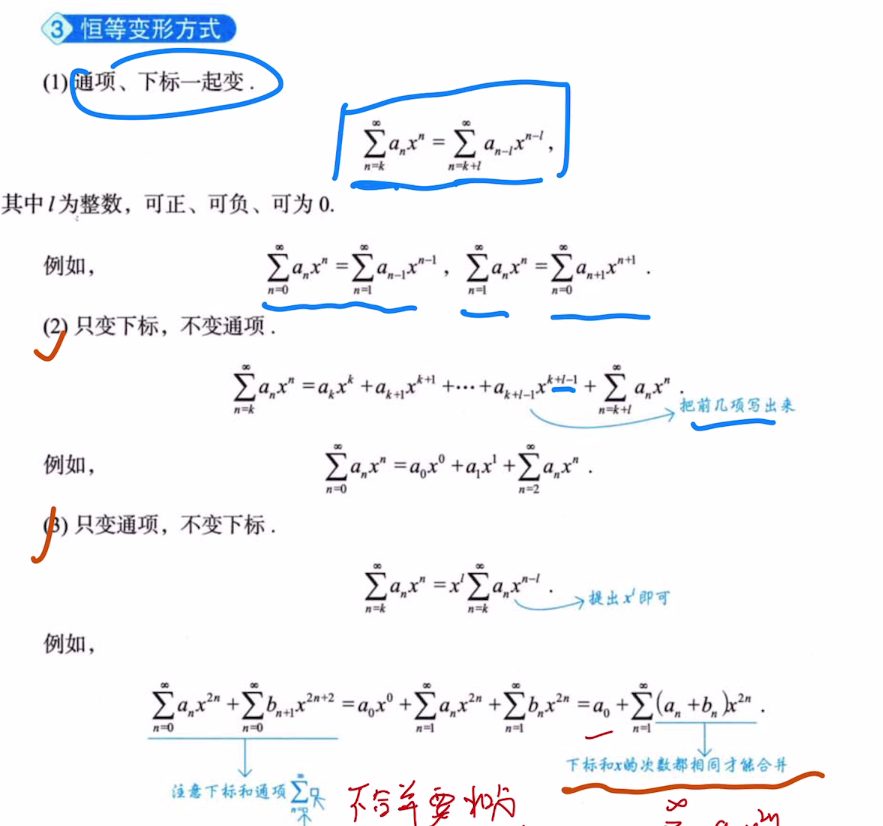 3 恒等变形方式
(1) 通项、下标一起变.
$\sum_{n=k}^{\infty} a_n x^n = \sum_{n=k+l}^{\infty} a_{n-l} x^{n-l}$,
其中 l 为整数, 可正、可负、可为 0.
例如, $\sum_{n=0}^{\infty} a_n x^n = \sum_{n=1}^{\infty} a_{n-1} x^{n-1}$, $\sum_{n=1}^{\infty} a_n x^n = \sum_{n=0}^{\infty} a_{n+1} x^{n+1}$.
(2) 只变下标, 不变通项.
$\sum_{n=k}^{\infty} a_n x^n = a_k x^k + a_{k+1} x^{k+1} + \cdots + a_{k+l-1} x^{k+l-1} + \sum_{n=k+l}^{\infty} a_n x^n$.
把前几项写出来
例如, $\sum_{n=0}^{\infty} a_n x^n = a_0 x^0 + a_1 x^1 + \sum_{n=2}^{\infty} a_n x^n$.
(3) 只变通项, 不变下标.
$\sum_{n=k}^{\infty} a_n x^n = x^l \sum_{n=k}^{\infty} a_n x^{n-l}$.
提出 $x^l$ 即可
例如,
$\sum_{n=0}^{\infty} a_n x^{2n} + \sum_{n=0}^{\infty} b_{n+1} x^{2n+2} = a_0 x^0 + \sum_{n=1}^{\infty} a_n x^{2n} + \sum_{n=1}^{\infty} b_n x^{2n} = a_0 + \sum_{n=1}^{\infty} (a_n + b_n) x^{2n}$.
下标和x的次数都相同才能合并
注意下标和通项